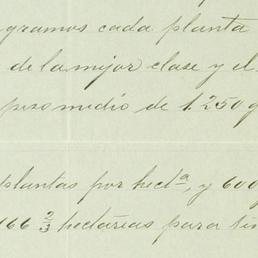 gramos cada planta
de la mejor clase y el
peso medio de 1.250 g
plantas por hectª, y 600
166 2/3 hectáreas para